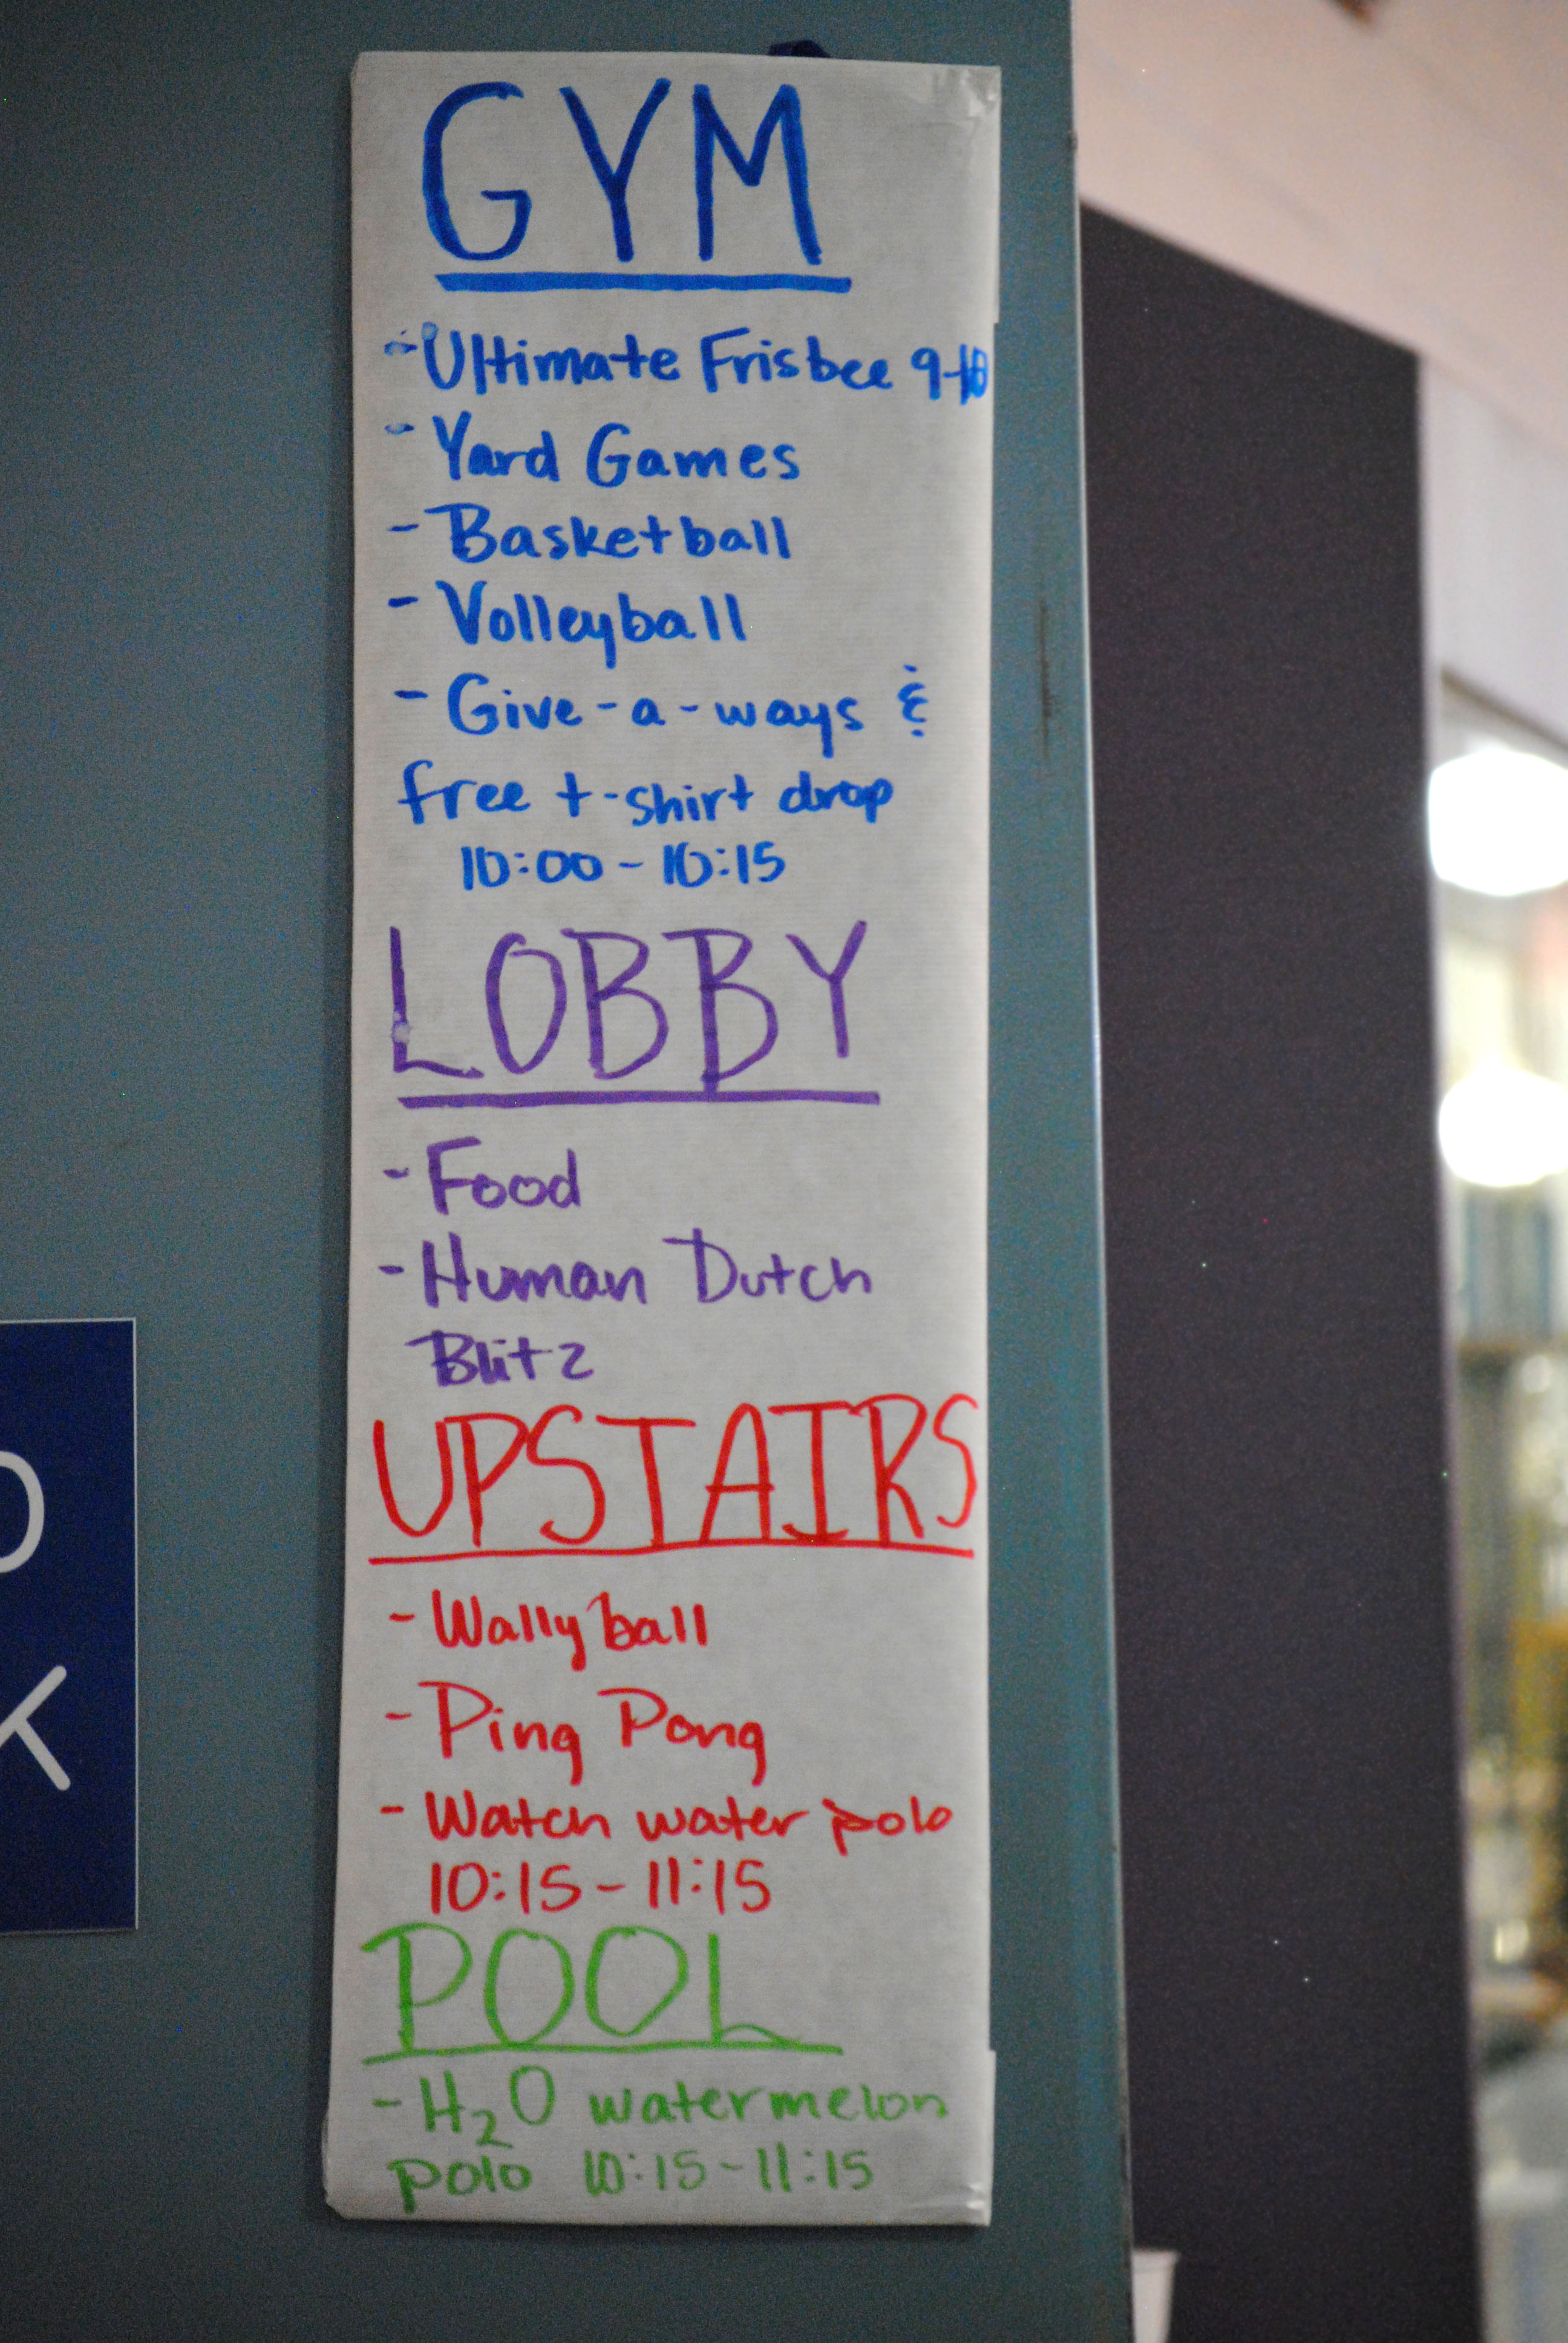 GYM
- Ultimate Frisbee 9-10
- Yard Games
- Basketball
- Volleyball
- Give-a-ways &
free t-shirt drop
10:00 - 10:15
LOBBY
- Food
- Human Dutch
Blitz
UPSTAIRS
- Wallyball
- Ping Pong
- Watch water polo
10:15 - 11:15
POOL
- H₂O watermelon
polo 10:15-11:15
O
K